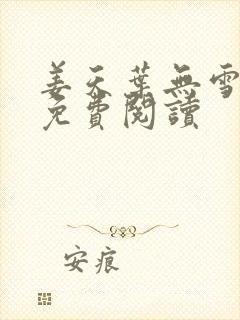 姜天葉無雪
免費閱讀
安痕